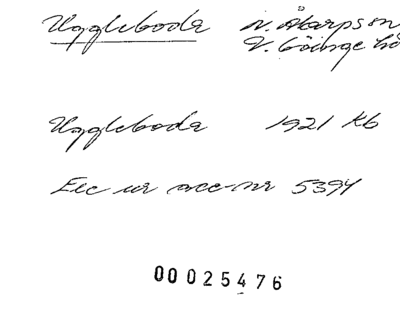 Uggleboda N. Åkarps sn
V. Göinge hd
Uggleboda 1921 Kb
Exc ur acc-nr 5394
00025476